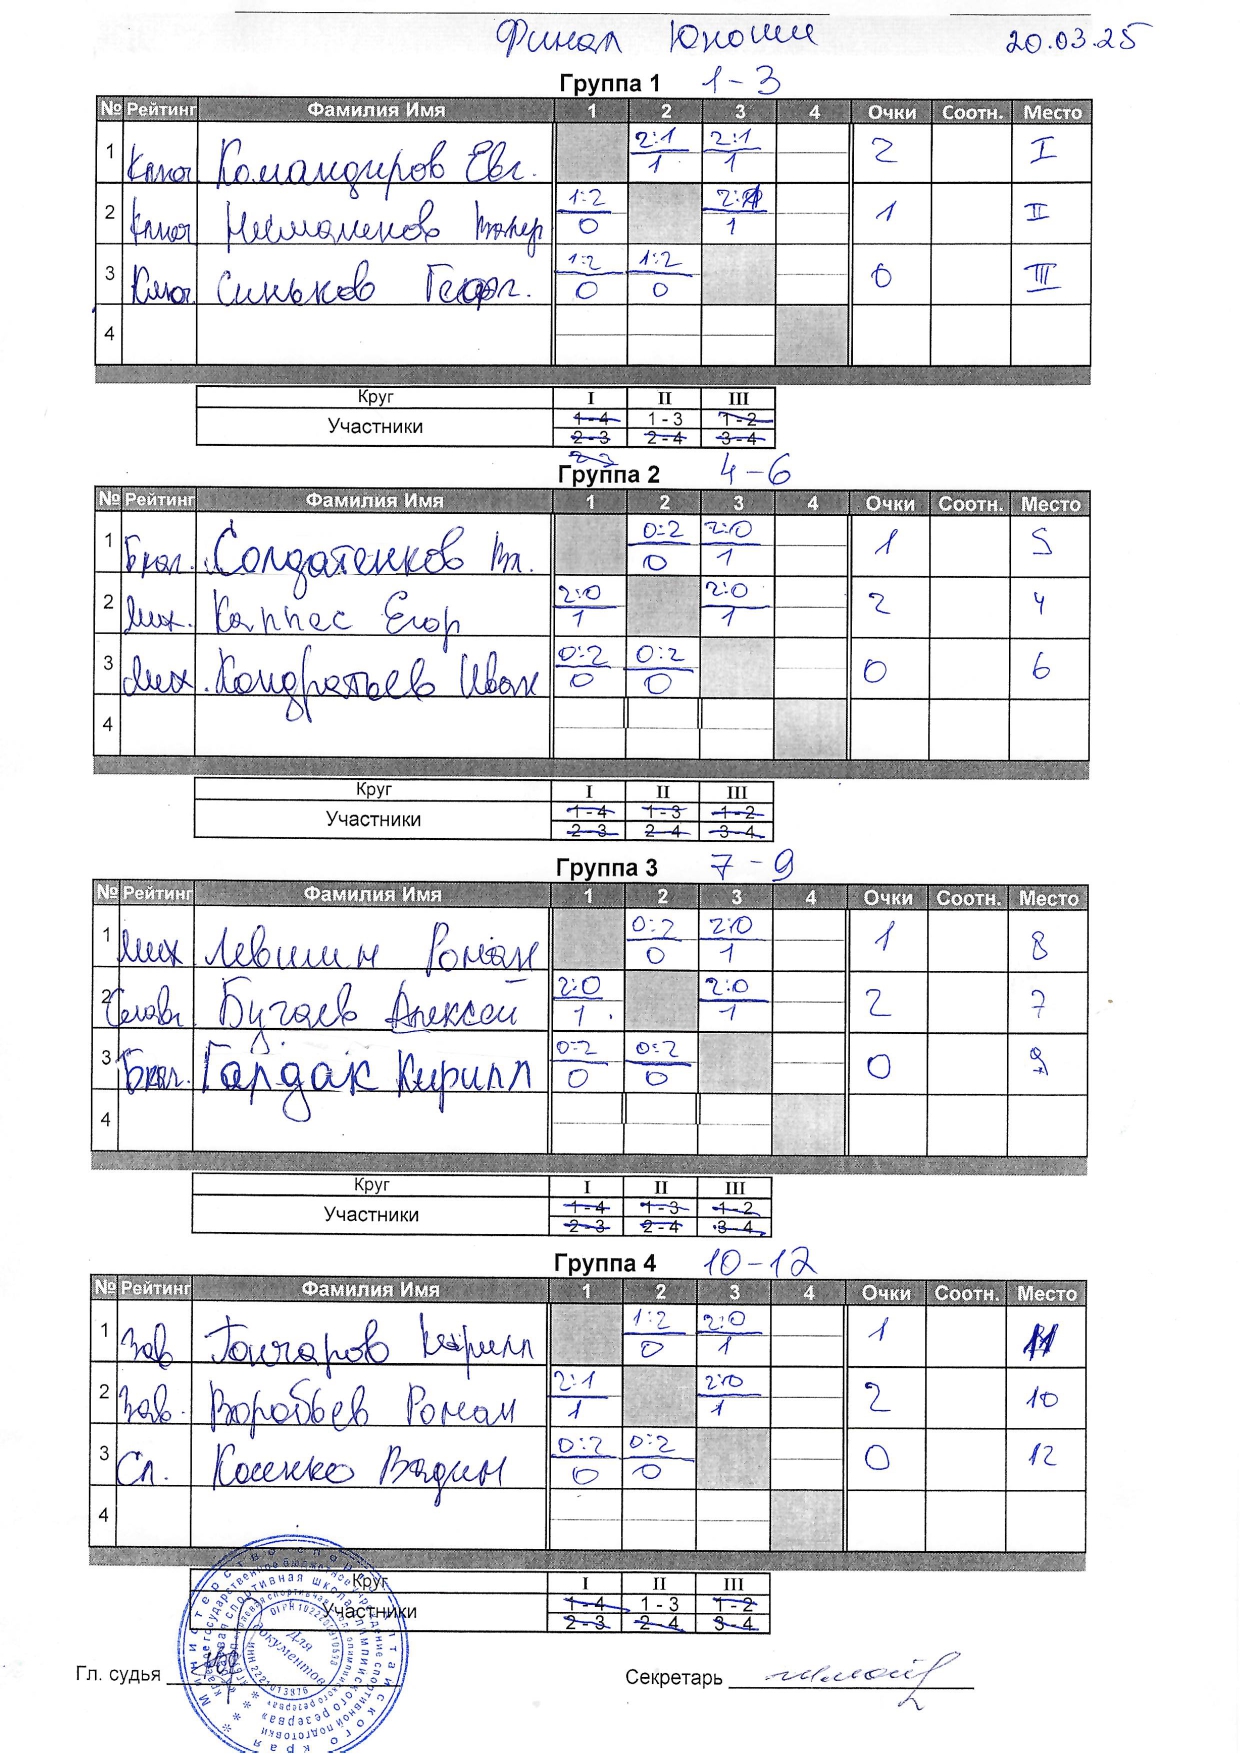 Финал Юноши 20.03.25
Группа 1 1-3
№ Рейтинг Фамилия Имя 1 2 3 4 Очки Соотн. Место
1 Ключ Командиров Евг. 2:1 1 2:1 1 2 I
2 Ключ 1:2 0 1 1 II
3 Ключ. Синьков Георг. 1:2 0 1:2 0 0 III
4
Круг I II III
Участники 1-4 1-3 1-2
2-3 2-4 3-4
2-3
Группа 2 4-6
№ Рейтинг Фамилия Имя 1 2 3 4 Очки Соотн. Место
1 Солдатенков Вл. 0:2 0 2:0 1 1 5
2 Мих. Каппес Егор 2:0 1 2:0 1 2 4
3 Мих. Кондратьев Иван 0:2 0 0:2 0 0 6
4
Круг I II III
Участники 1-4 1-3 1-2
2-3 2-4 3-4
Группа 3 7-9
№ Рейтинг Фамилия Имя 1 2 3 4 Очки Соотн. Место
1 Мих Левшин Роман 0:2 0 2:0 1 1 8
2 Славг Бугаев Алексей 2:0 1 2:0 1 2 7
3 Гардак Кирилл 0:2 0 0:2 0 0 9
4
Круг I II III
Участники 1-4 1-3 1-2
2-3 2-4 3-4
Группа 4 10-12
№ Рейтинг Фамилия Имя 1 2 3 4 Очки Соотн. Место
1 Зав Гончаров Кирилл 1:2 0 2:0 1 1 11
2 Зав. Воробьев Роман 2:1 1 2:0 1 2 10
3 Сл. Косенко Вадим 0:2 0 0:2 0 0 12
4
Круг I II III
Участники 1-4 1-3 1-2
2-3 2-4 3-4
Для документов
Гл. судья Секретарь